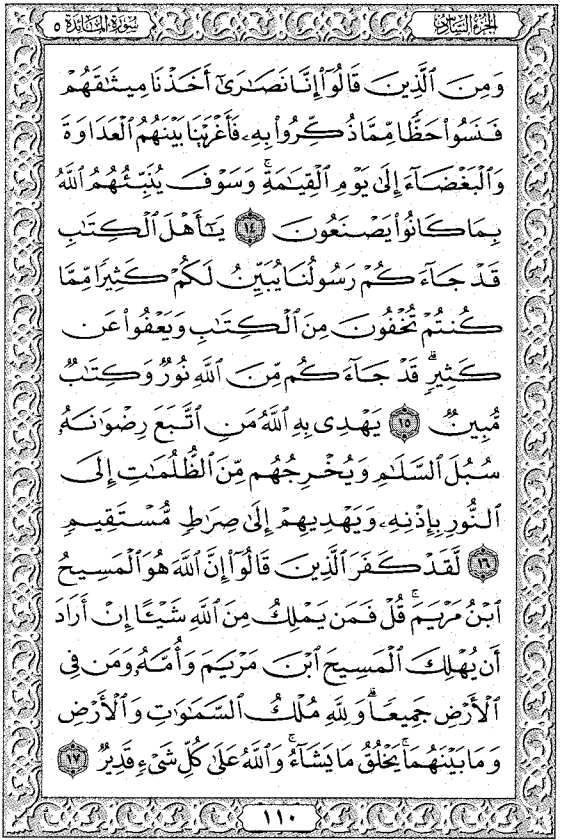 الجزء السادس
سورة المائدة ٥
وَمِنَ ٱلَّذِينَ قَالُوٓاْ إِنَّا نَصَٰرَىٰٓ أَخَذۡنَا مِيثَٰقَهُمۡ
فَنَسُواْ حَظّٗا مِّمَّا ذُكِّرُواْ بِهِۦ فَأَغۡرَيۡنَا بَيۡنَهُمُ ٱلۡعَدَاوَةَ
وَٱلۡبَغۡضَآءَ إِلَىٰ يَوۡمِ ٱلۡقِيَٰمَةِۚ وَسَوۡفَ يُنَبِّئُهُمُ ٱللَّهُ
بِمَا كَانُواْ يَصۡنَعُونَ ١٤ يَٰٓأَهۡلَ ٱلۡكِتَٰبِ
قَدۡ جَآءَكُمۡ رَسُولُنَا يُبَيِّنُ لَكُمۡ كَثِيرٗا مِّمَّا
كُنتُمۡ تُخۡفُونَ مِنَ ٱلۡكِتَٰبِ وَيَعۡفُواْ عَن
كَثِيرٖۚ قَدۡ جَآءَكُم مِّنَ ٱللَّهِ نُورٞ وَكِتَٰبٞ
مُّبِينٞ ١٥ يَهۡدِي بِهِ ٱللَّهُ مَنِ ٱتَّبَعَ رِضۡوَٰنَهُۥ
سُبُلَ ٱلسَّلَٰمِ وَيُخۡرِجُهُم مِّنَ ٱلظُّلُمَٰتِ إِلَى
ٱلنُّورِ بِإِذۡنِهِۦ وَيَهۡدِيهِمۡ إِلَىٰ صِرَٰطٖ مُّسۡتَقِيمٖ
١٦ لَّقَدۡ كَفَرَ ٱلَّذِينَ قَالُوٓاْ إِنَّ ٱللَّهَ هُوَ ٱلۡمَسِيحُ
ٱبۡنُ مَرۡيَمَۚ قُلۡ فَمَن يَمۡلِكُ مِنَ ٱللَّهِ شَيۡـًٔا إِنۡ أَرَادَ
أَن يُهۡلِكَ ٱلۡمَسِيحَ ٱبۡنَ مَرۡيَمَ وَأُمَّهُۥ وَمَن فِي
ٱلۡأَرۡضِ جَمِيعٗاۗ وَلِلَّهِ مُلۡكُ ٱلسَّمَٰوَٰتِ وَٱلۡأَرۡضِ
وَمَا بَيۡنَهُمَاۚ يَخۡلُقُ مَا يَشَآءُۚ وَٱللَّهُ عَلَىٰ كُلِّ شَيۡءٖ قَدِيرٞ ١٧
١١٠